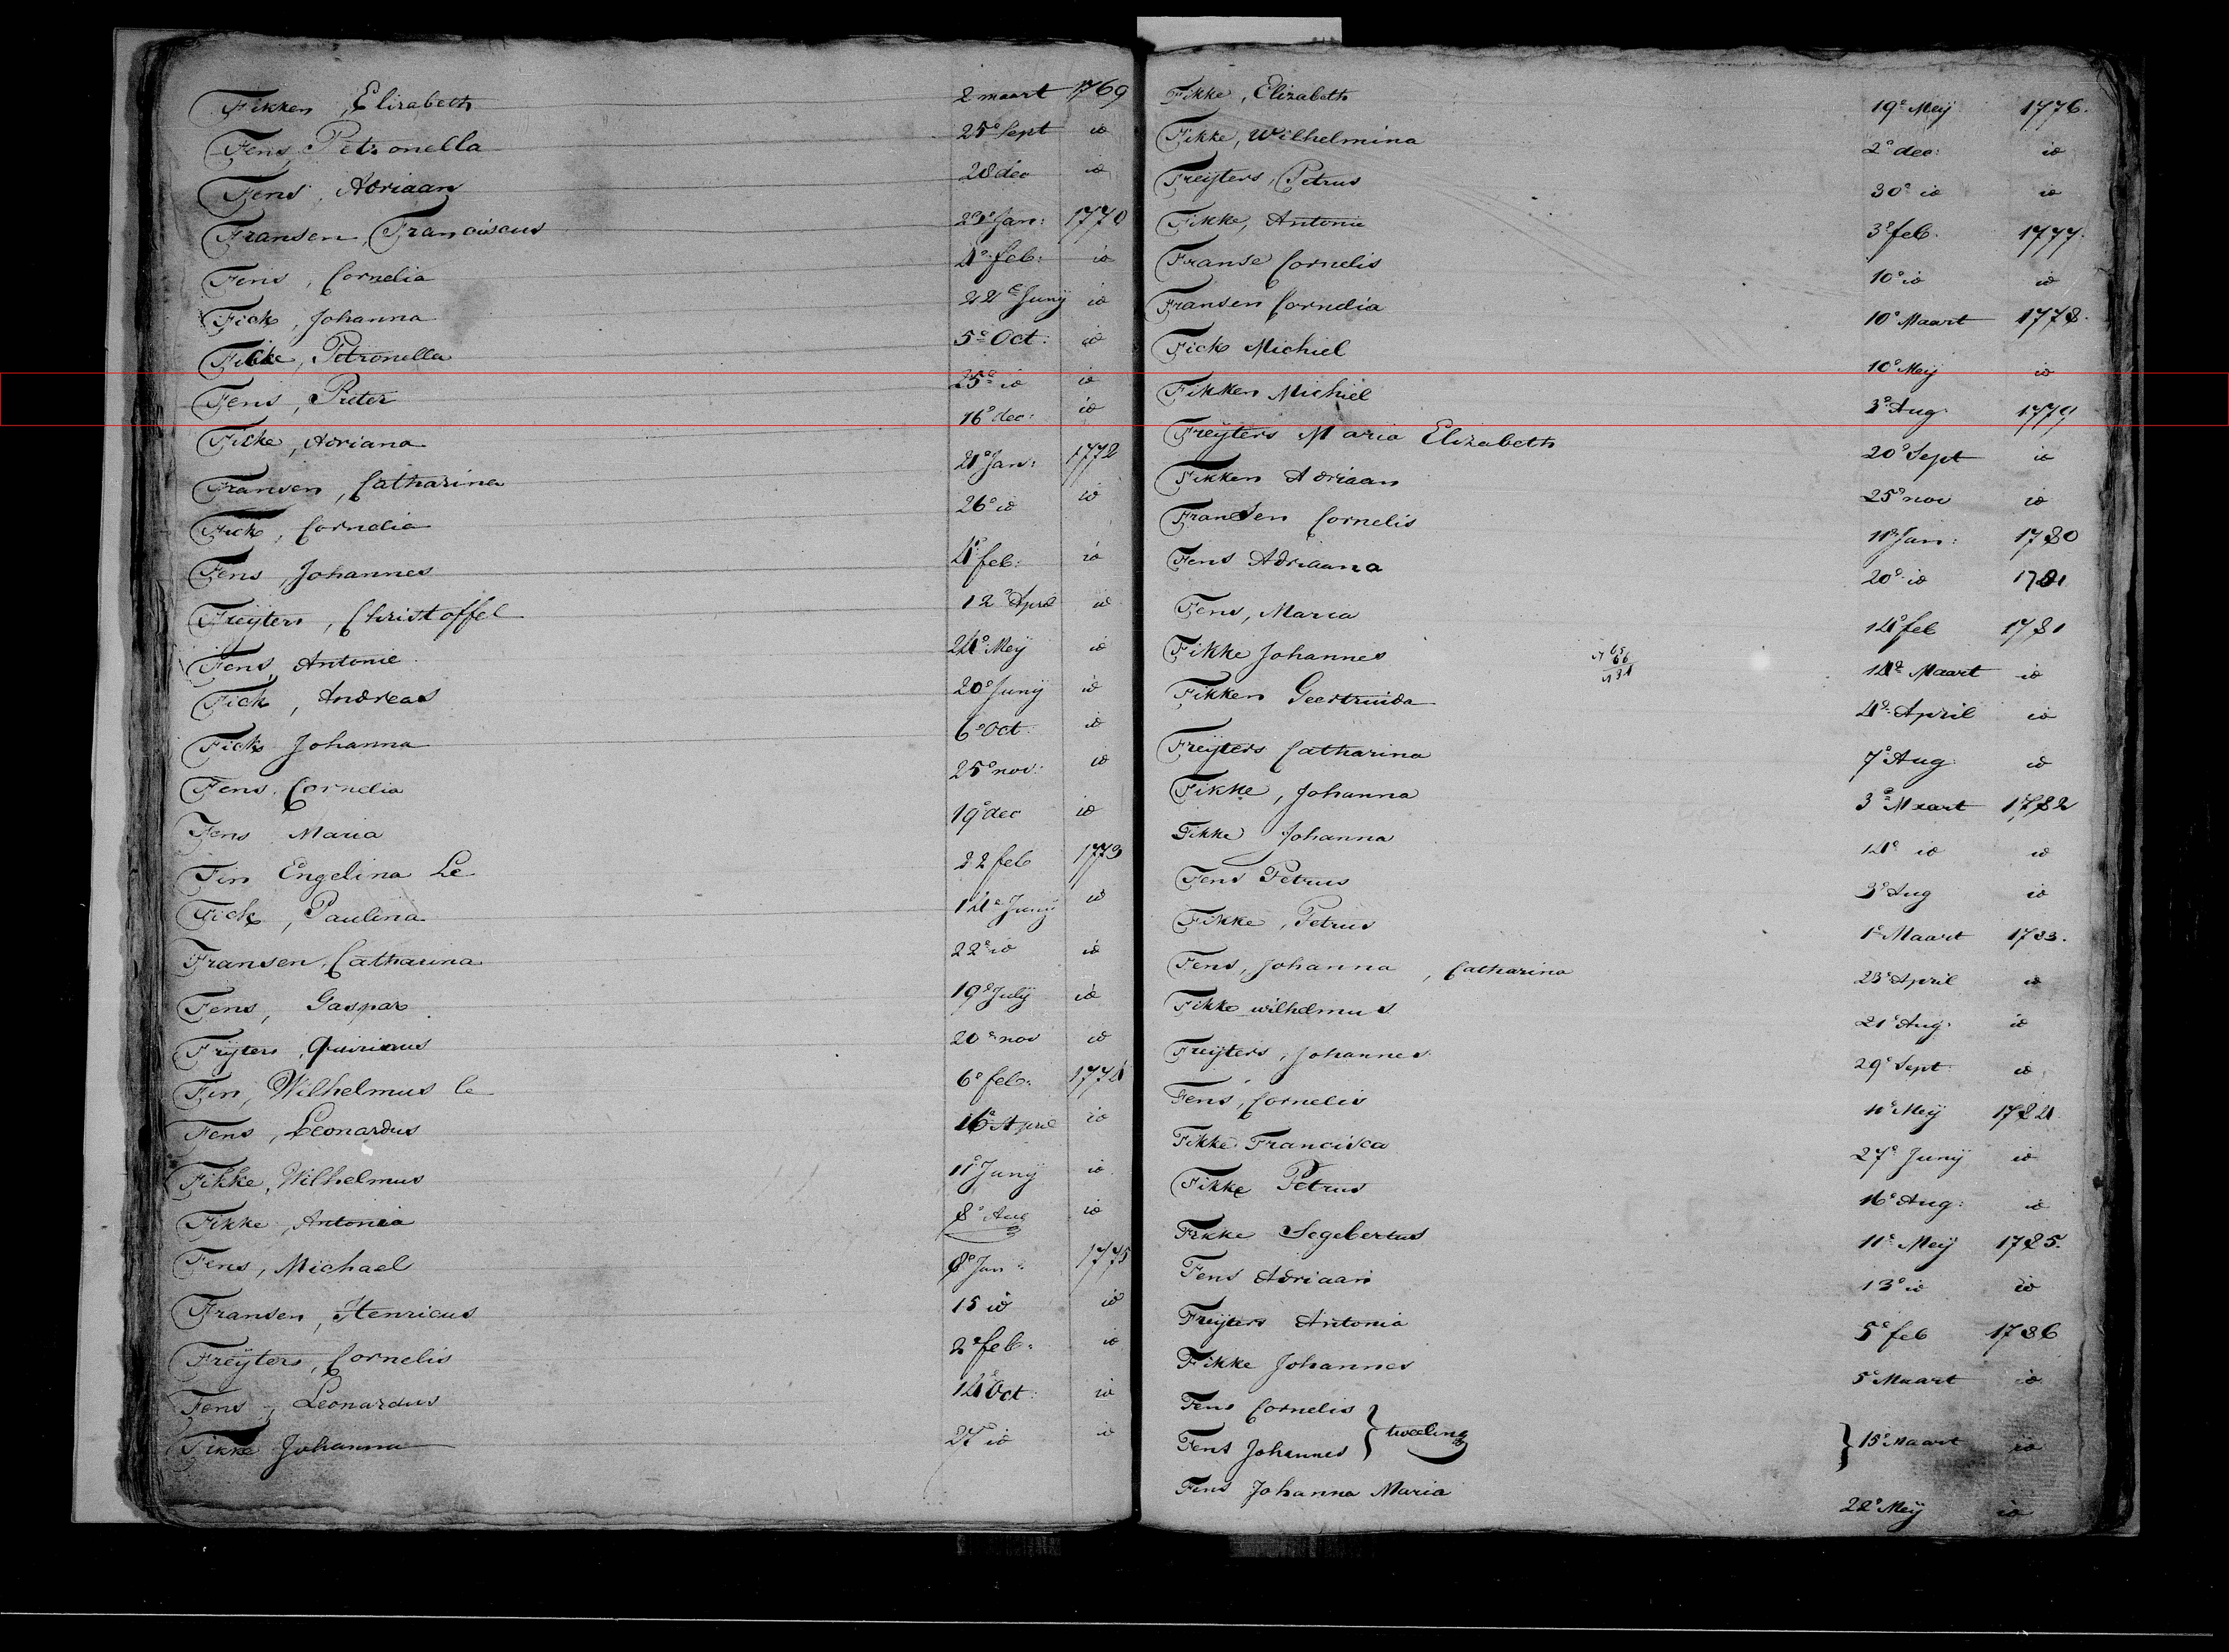 Fikken, Elizabeth 2 maart 1769
Fens Petronella 25e Sept id
Fens, Adriaan 28 dec id
Fransen, Franciscus 29e Jan: 1770
Fens, Cornelia 4e feb: id
Fick, Johanna 22e Junij id
Ficke, Petronella 5e Oct: id
Fens, Pieter 25e id id
Ficke, Adriana 16e dec: id
Fransen, Catharina 21e Jan: 1772
Fick, Cornelia 26e id id
Fens, Johannes 4e feb: id
Freijters, Christoffel 12e April id
Fens, Antonie 24e Meij id
Fick, Andreas 20e Junij id
Fick Johanna 6e Oct id
Fens. Cornelia 25e nov: id
Fens Maria 19e dec id
Fin Engelina Le 22 feb 1773
Fick, Paulina 14e Junij id
Fransen, Catharina 22e id id
Fens, Gaspar 19e Julij id
Frijters, Quirinus 20e nov id
Fin, Wilhelmus le 6e feb: 1774
Fens, Leonardus 16e April id
Fikke, Wilhelmus 11e Junij id
Fikke, Antonia 8e Aug id
Fens, Michael 8e Jan: 1775
Fransen, Henricus 15 id id
Freijters, Cornelis 2e feb: id
Fens, Leonardus 14e Oct: id
Fikke Johanna 27 id id
Fikke, Elizabeth 19e Meij 1776.
Fikke, Wilhelmina 2e dec: id
Freijters, Petrus 30e id id
Fikke, Antonie 3e feb. 1777.
Franse Cornelis 10e id id
Fransen Cornelia 10e Maart 1778.
Fick Michiel 10e Meij id
Fikken Michiel 3e Aug: 1779
Freijters Maria Elizabeth 20e Sept id
Fikken Adriaan 25e nov id
Fransen Cornelis 11e Jan: 1780
Fens Adriaana 20e id 1781
Fens, Maria 14e feb 1781
Fikke Johannes 14e Maart id
Fikken Geertruida 4e April id
Freijters Catharina 7e Aug: id
Fikke, Johanna 3e Maart 1782
Fikke Johanna 14e id id
Fens Petrus 3e Aug id
Fikke, Petrus 1e Maart 1783.
Fens, Johanna, Catharina 23e April id
Fikke wilhelmus 21e Aug: id
Freijters, Johannes 29e Sept id
Fens, Cornelis 11e Meij 1784
Fikke Francisca 27e Junij id
Fikke Petrus 16e Aug: id
Fikke Segebertus 11e Meij 1785.
Fens Adriaan 13e id id
Freijters Antonia 5e feb 1786
Fikke Johannes 5e Maart id
Fens Cornelis } tweeling
Fens Johannes } 15e Maart id
Fens Johanna Maria 22e Meij id